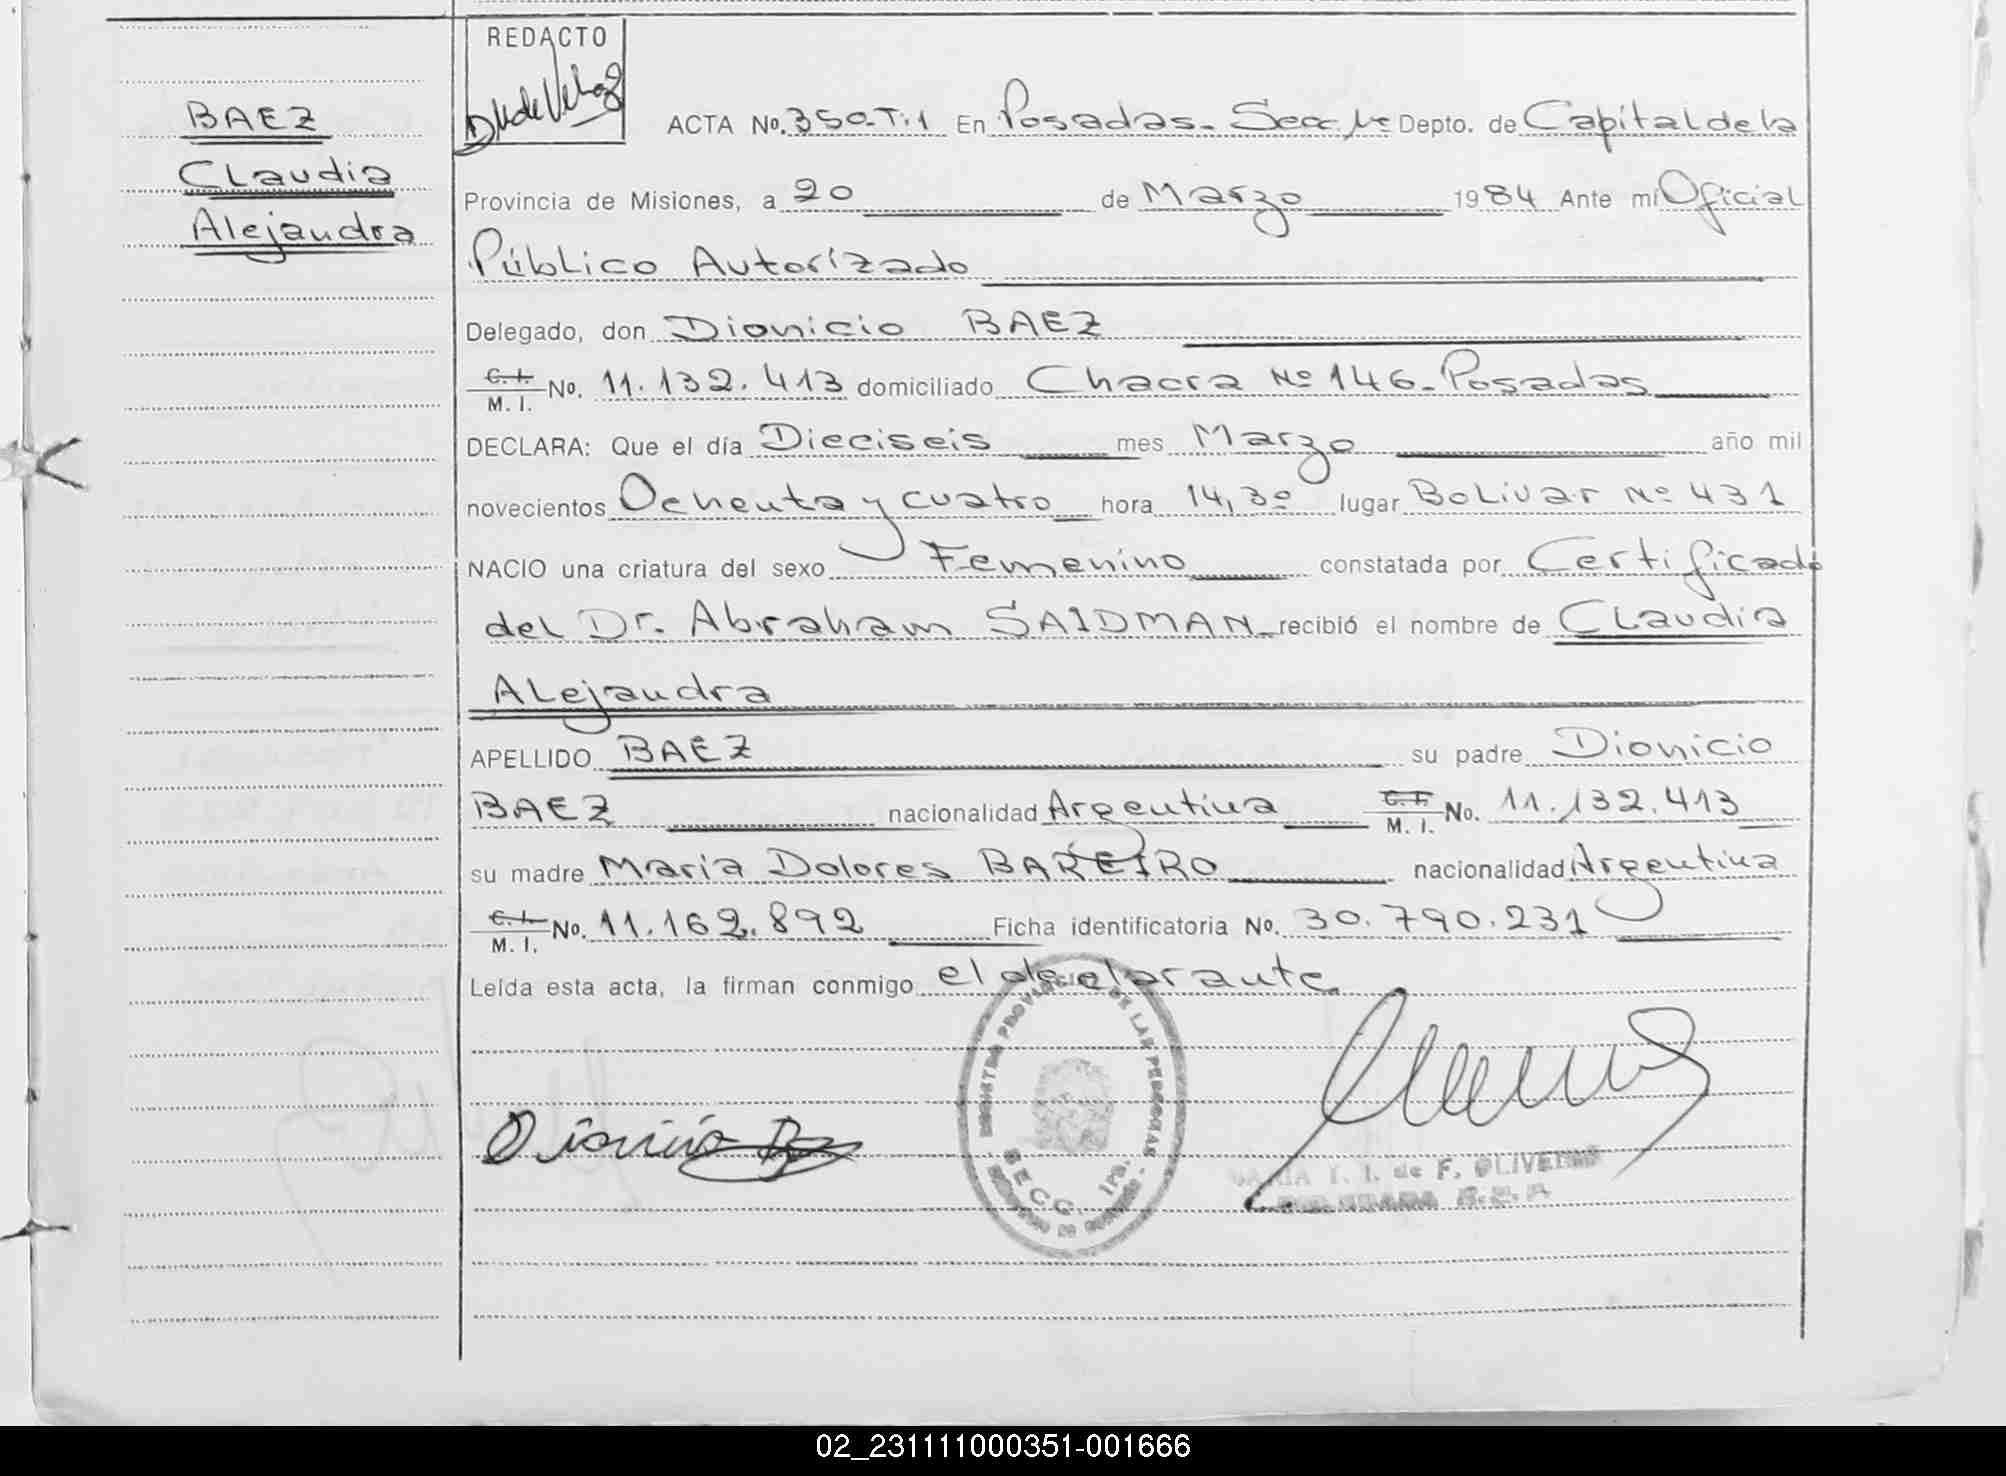 REDACTO
BAEZ
Claudia
Alejandra
ACTA No. 350-T.1 En Posadas-Secc. 1ª Depto. de Capital de la
Provincia de Misiones, a 20 de Marzo 1984 Ante mí Oficial
Público Autorizado
Delegado, don Dionicio BAEZ
C. I. M. I. No. 11.132.413 domiciliado Chacra Nº 146-Posadas
DECLARA: Que el día Dieciseis mes Marzo año mil
novecientos Ochenta y cuatro hora 14,30 lugar Bolivar Nº 431
NACIO una criatura del sexo Femenino constatada por Certificado
del Dr. Abraham SAIDMAN recibió el nombre de Claudia
Alejandra
APELLIDO BAEZ su padre Dionicio
BAEZ nacionalidad Argentina C. I. M. I. No. 11.132.413
su madre Maria Dolores BAREIRO nacionalidad Argentina
C. I. M. I. No. 11.162.892 Ficha identificatoria No. 30.790.231
Leída esta acta, la firman conmigo el declarante.
REGISTRO PROVINCIAL DE LAS PERSONAS
SECC. 1ra.
Dionicio Baez
I. de F. OLIVEIRA
02_231111000351-001666